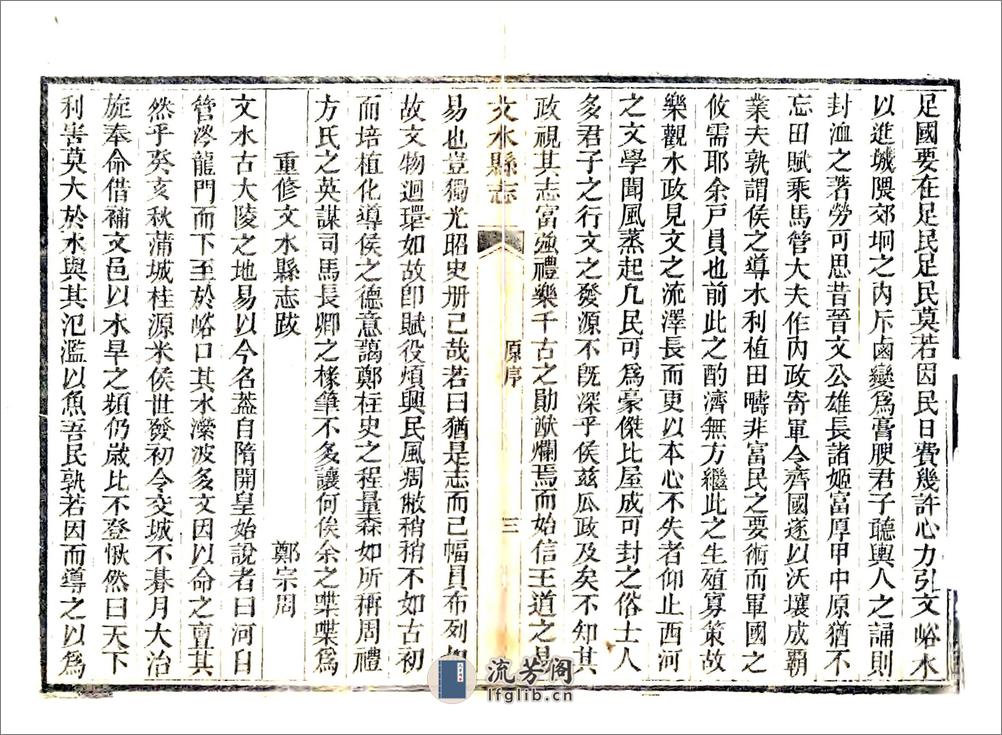 足國要在足民足民莫若因民日費幾許心力引文峪水
以進城隈郊坰之内斥鹵變爲膏腴君子聽輿人之誦則
封洫之著勞可思昔晉文公雄長諸姬富厚甲中原猶不
忘田賦乘馬管大夫作内政寄軍令齊國遂以沃壤成覇
業夫孰謂侯之導水利植田疇非富民之要術而軍國之
攸需耶余戸員也前此之酌濟無方繼此之生殖寡策故
樂觀水政見文之流澤長而更以本心不失者仰止西河
之文學聞風蒸起凢民可爲豪傑比屋成可封之俗士人
多君子之行文之發源不旣深乎侯兹瓜政及矣不知其
政視其志富強禮樂千古之勛猷爛焉而始信王道之易
文水縣志
原序
三
易也豈獨光昭史册已哉若曰猶是志而已幅員布列如
故文物迴環如故卽賦役煩興民風凋敝稍稍不如古初
而培植化導侯之德意藹鄭柱史之程量森如所稱周禮
方氏之英謀司馬長卿之椽筆不多讓何俟余之喋喋爲
重修文水縣志跋
鄭宗周
文水古大陵之地易以今名葢自隋開皇始說者曰河自
管涔龍門而下至於峪口其水濼波多文因以命之亶其
然乎癸亥秋蒲城桂源米侯世發初令交城不朞月大治
旋奉命借補文邑以水旱之頻仍歲比不登愀然曰天下
利害莫大於水與其氾濫以魚吾民孰若因而導之以爲
流芳閣
lfglib.cn